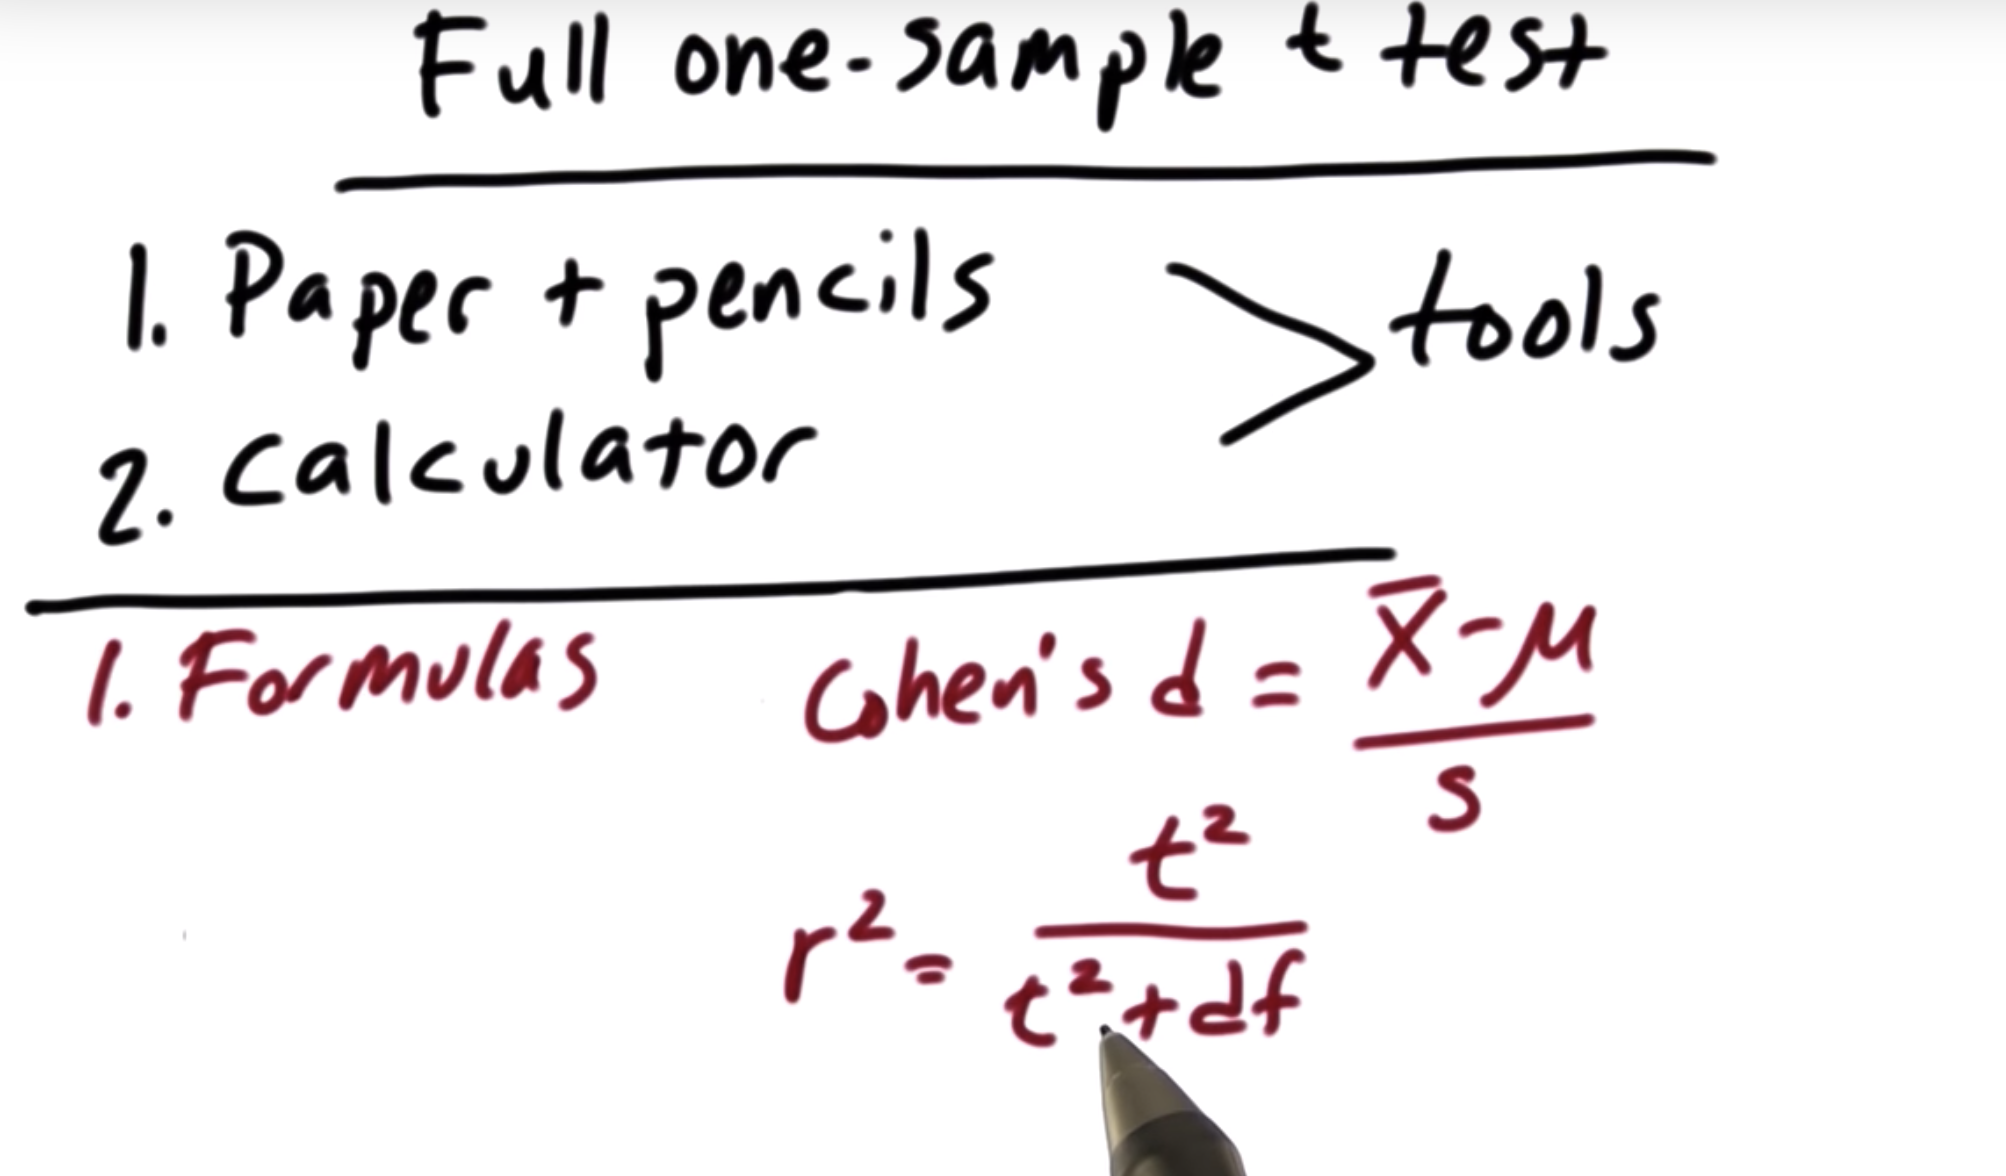 Full one-sample t test
1. Paper + pencils
2. Calculator
> tools
1. Formulas
Cohen's d = x̄ - μ / s
r² = t² / t² + df